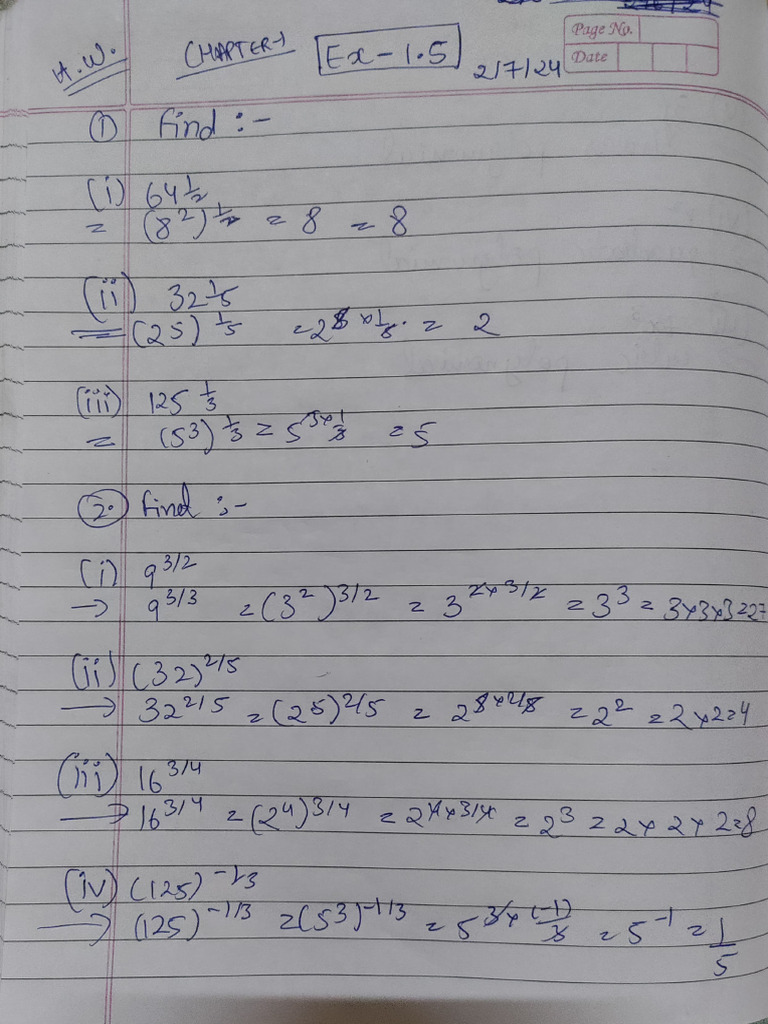 Page No.
Date
H.W. CHAPTER-1 Ex-1.5 2/7/24
① Find :-
(i) 64 1/2
= (8²) 1/2 = 8 = 8
(ii) 32 1/5
= (25) 1/5 = 2 5 × 1/5. = 2
(iii) 125 1/3
= (5³) 1/3 = 5 3×1/3 = 5
②. Find :-
(i) 9^3/2
→ 9^3/3 = (3²)^3/2 = 3^2×3/2 = 3³ = 3×3×3=27
(ii) (32)^2/5
→ 32^2/5 = (2⁵)^2/5 = 2^5×2/5 = 2² = 2×2=4
(iii) 16^3/4
→ 16^3/4 = (2⁴)^3/4 = 2^4×3/4 = 2³ = 2×2×2=8
(iv) (125)^-1/3
→ (125)^-1/3 = (5³)^-1/3 = 5^3×(-1)/3 = 5^-1 = 1/5